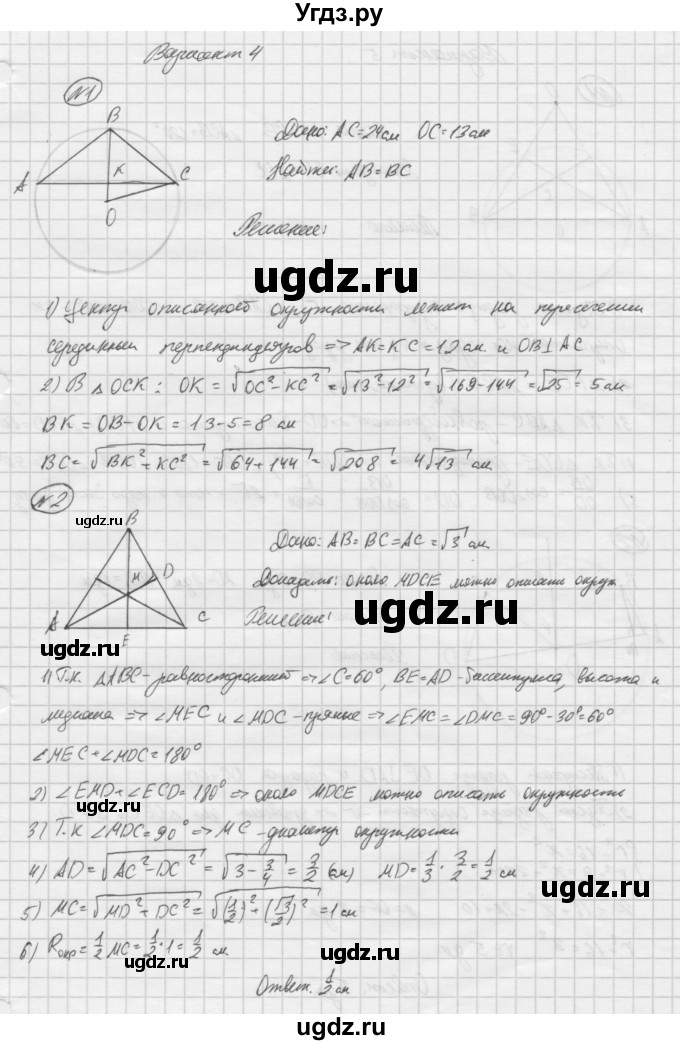 Угдз.ру
Вариант 4
№1
B
A
K
C
O
Дано: AC=24см OC=13см
Найти: AB=BC
Решение:
ugdz.ru
1) Центр описанной окружности лежит на пересечении
серединных перпендикуляров => AK=KC=12 см. и OB⊥AC
2) В △OCK: OK = √(OC²-KC²) = √(13²-12²) = √(169-144) = √25 = 5 см
BK = OB-OK = 13-5 = 8 см
BC = √(BK²+KC²) = √(64+144) = √208 = 4√13 см
№2
ugdz.ru
B
M
D
A
E
C
Дано: AB=BC=AC=√3 см.
Доказать: около MDCE можно описать окруж.
Решение:
ugdz.ru
ugdz.ru
1) Т.к. △ABC-равносторонний => ∠C=60°, BE=AD-биссектриса, высота и
медиана => ∠MEC и ∠MDC-прямые => ∠EMC=∠DMC=90°-30°=60°
∠MEC+∠MDC=180°
ugdz.ru
2) ∠EMD+∠ECD=180° => около MDCE можно описать окружность
3) Т.к ∠MDC=90° => MC-диаметр окружности
ugdz.ru
4) AD = √(AC²-DC²) = √(3-3/4) = 3/2 (см) MD = 1/3 · 3/2 = 1/2 см
ugdz.ru
5) MC = √(MD²+DC²) = √((1/2)²+(√3/2)²) = 1 см
6) Rокр = 1/2 MC = 1/2 · 1 = 1/2 см.
ugdz.ru
Ответ. 1/2 см
ugdz.ru
ugdz.ru